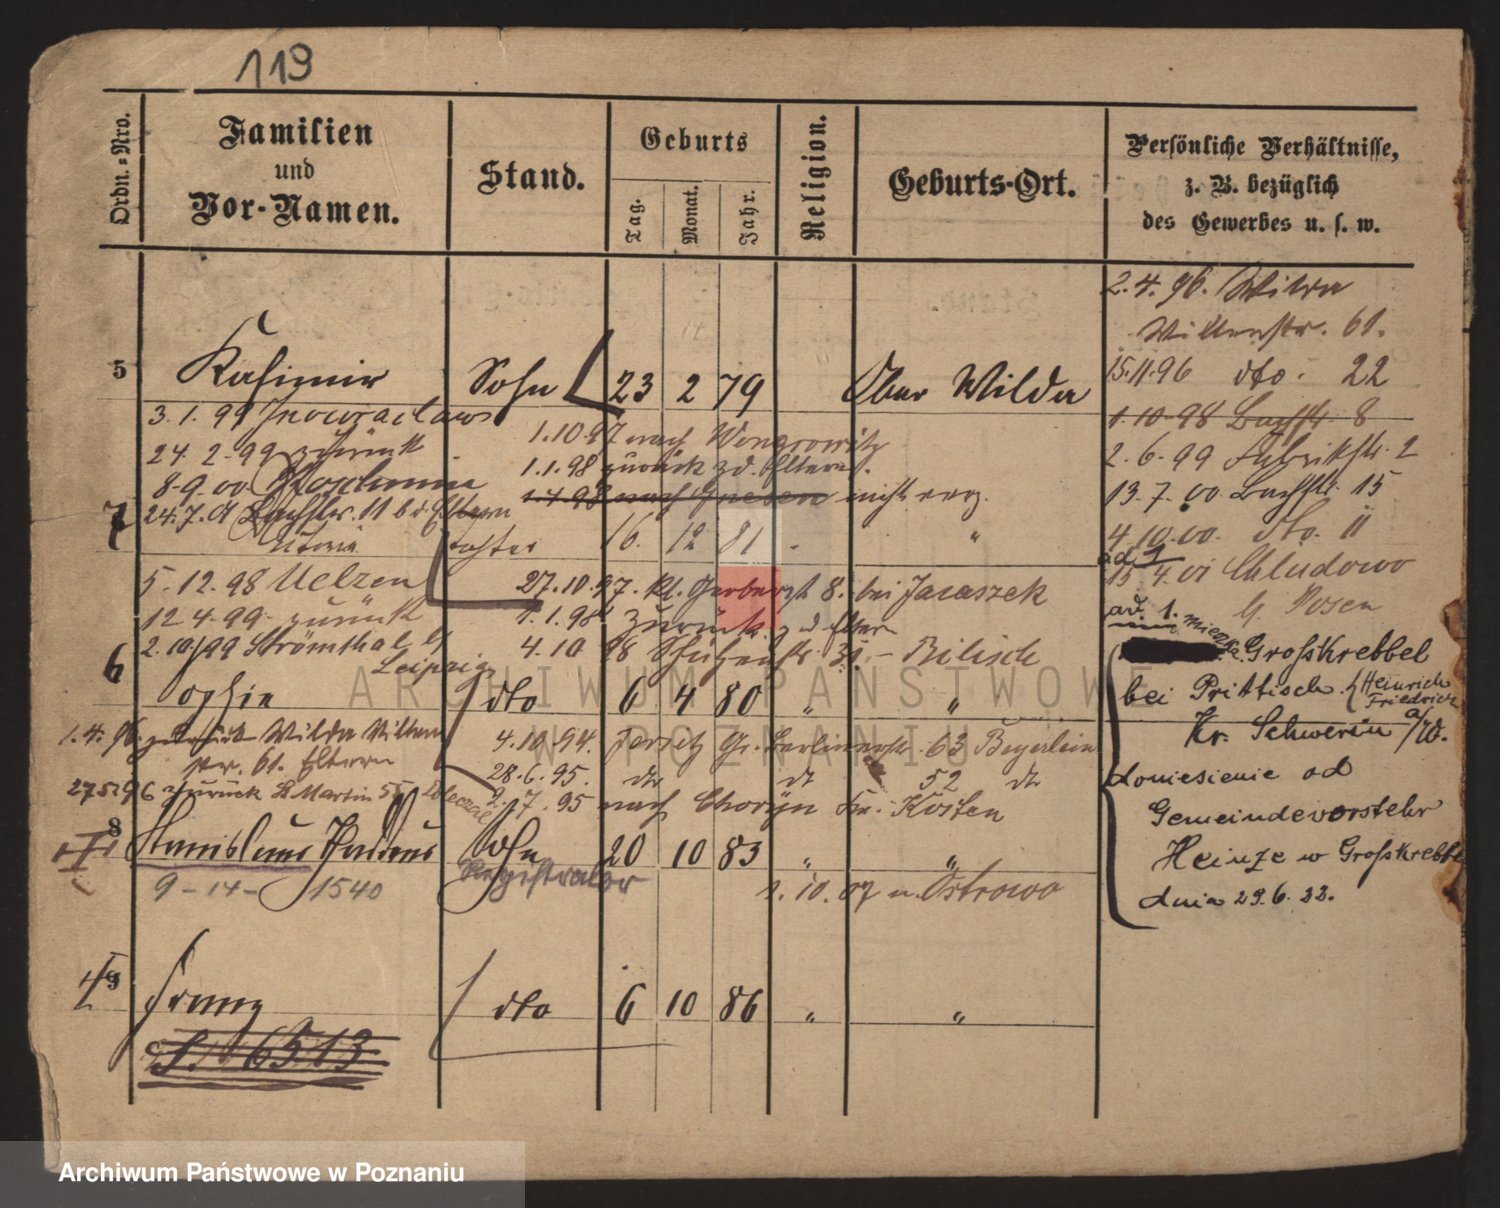 119
Ordn.-Nro.
Familien
und
Vor-Namen.
Stand.
Geburts
Tag.
Monat.
Jahr.
Religion.
Geburts-Ort.
Persönliche Verhältnisse,
z. B. bezüglich
des Gewerbes u. s. w.
2. 4. 96. Wilda
Willenstr. 61.
5 Kasimir Sohn 23 2 79 Ober Wilda
15.11.96 dto. 22
3. 1. 99 Inowraclaw
1.10.97 nach Wongrowitz
1.10.98 Bachstr. 8
24. 2. 99 zurück
1.1.98 zurück z. d. Eltern.
2. 6. 99 Fabrikstr. 2
8.9.00
1.4.98 nach Gnesen nicht verz.
13. 7. 00 Bachstr. 15
24.7.01 Bachstr. 11 b. d. Eltern
4.10.00. dto. 11
7 tochter 16. 12 81 "
15. 4. 01 Chludowo
5. 12. 98 Uelzen
27.10.97. Kl. Gerberst 8. bei Jaraszek
Posen
12 4. 99. zurück
1.1.98 zurück z. d. Eltern
ad. 1.
2.10.99 Strömthal
Leipzig
4.10 98 Schützenstr. 31.-
Grosskrebbel
6 ophie dto 6 4 80 " "
bei Prittisch. Heinrich
Friedrich
Kr. Schwerin a/W.
1. 4. 96 zurück Wilda
str. 61. Eltern
4.10.94. Jersitz Gr. Berlinerstr. 63 Beyerlein
28. 6. 95. dto dt 52 dt
doniesienie od
27.5.96 zurück St Martin 55
2. 7. 95 nach Choryn Kr. Kosten
Gemeindevorstehr
8 Stanislaus Sohn 20 10 83 " "
Registrator
Heinze w Grosskrebbel
9-14- 1540
1. 10. 07 n. Ostrowo
dnia 29. 6. 22.
9 Franz dto 6 10 86 " "
6513
ARCHIWUM PAŃSTWOWE
W POZNANIU
Archiwum Państwowe w Poznaniu